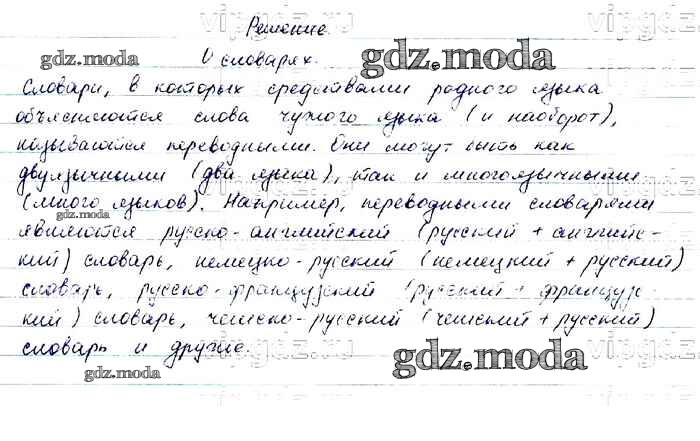 Решение.
О словарях.
Словари, в которых средствами родного языка
объясняются слова чужого языка (и наоборот),
называются переводными. Они могут быть как
двуязычными (два языка), так и многоязычными
(много языков). Например, переводными словарями
являются русско-английский (русский + английс-
кий) словарь, немецко-русский (немецкий + русский)
словарь, русско-французский (русский + француз-
кий) словарь, чешско-русский (чешский + русский)
словарь и другие.
gdz.moda
gdz.moda
gdz.moda
gdz.moda
gdz.moda
vipgdz.ru
vipgdz.ru
vipgdz.ru